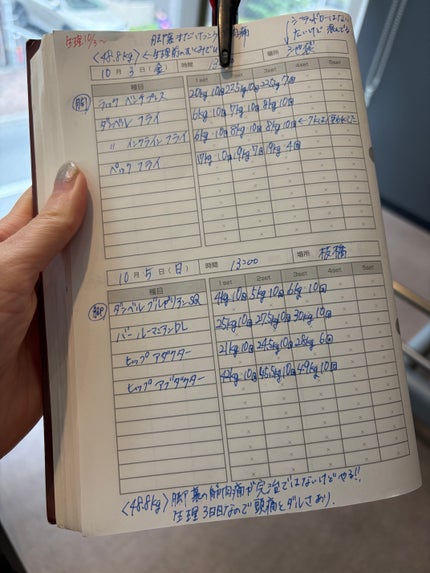 生理10/3〜
〈48.8kg〉←生理前
10月3日(金) 時間 場所 池袋
種目 1set 2set 3set 4set 5set
胸
ベンチプレス 20kg 10回 22.5kg 10回 22.5kg 7回
ダンベル フライ 6kg 10回 7kg 10回 8kg 10回
〃 インクラインフライ 6kg 10回 8kg 10回 8kg 10回
ペックフライ 19kg 10回 19kg 7回 19kg 4回
10月5日(日) 時間 13:00 場所 板橋
種目 1set 2set 3set 4set 5set
脚
ダンベル ブルガリアンSQ 4kg 10回 5kg 10回 6kg 10回
バー ルーマニアンDL 25kg 10回 27.5kg 10回 30kg 10回
ヒップ アダクター 21kg 10回 24.5kg 10回 28kg 6回
ヒップ アブダクター 42kg 10回 45.5kg 10回 49kg 10回
〈48.8kg〉脚裏の筋肉痛が完治ではないけどやる!!
生理3日目なので頭痛とダルさあり.